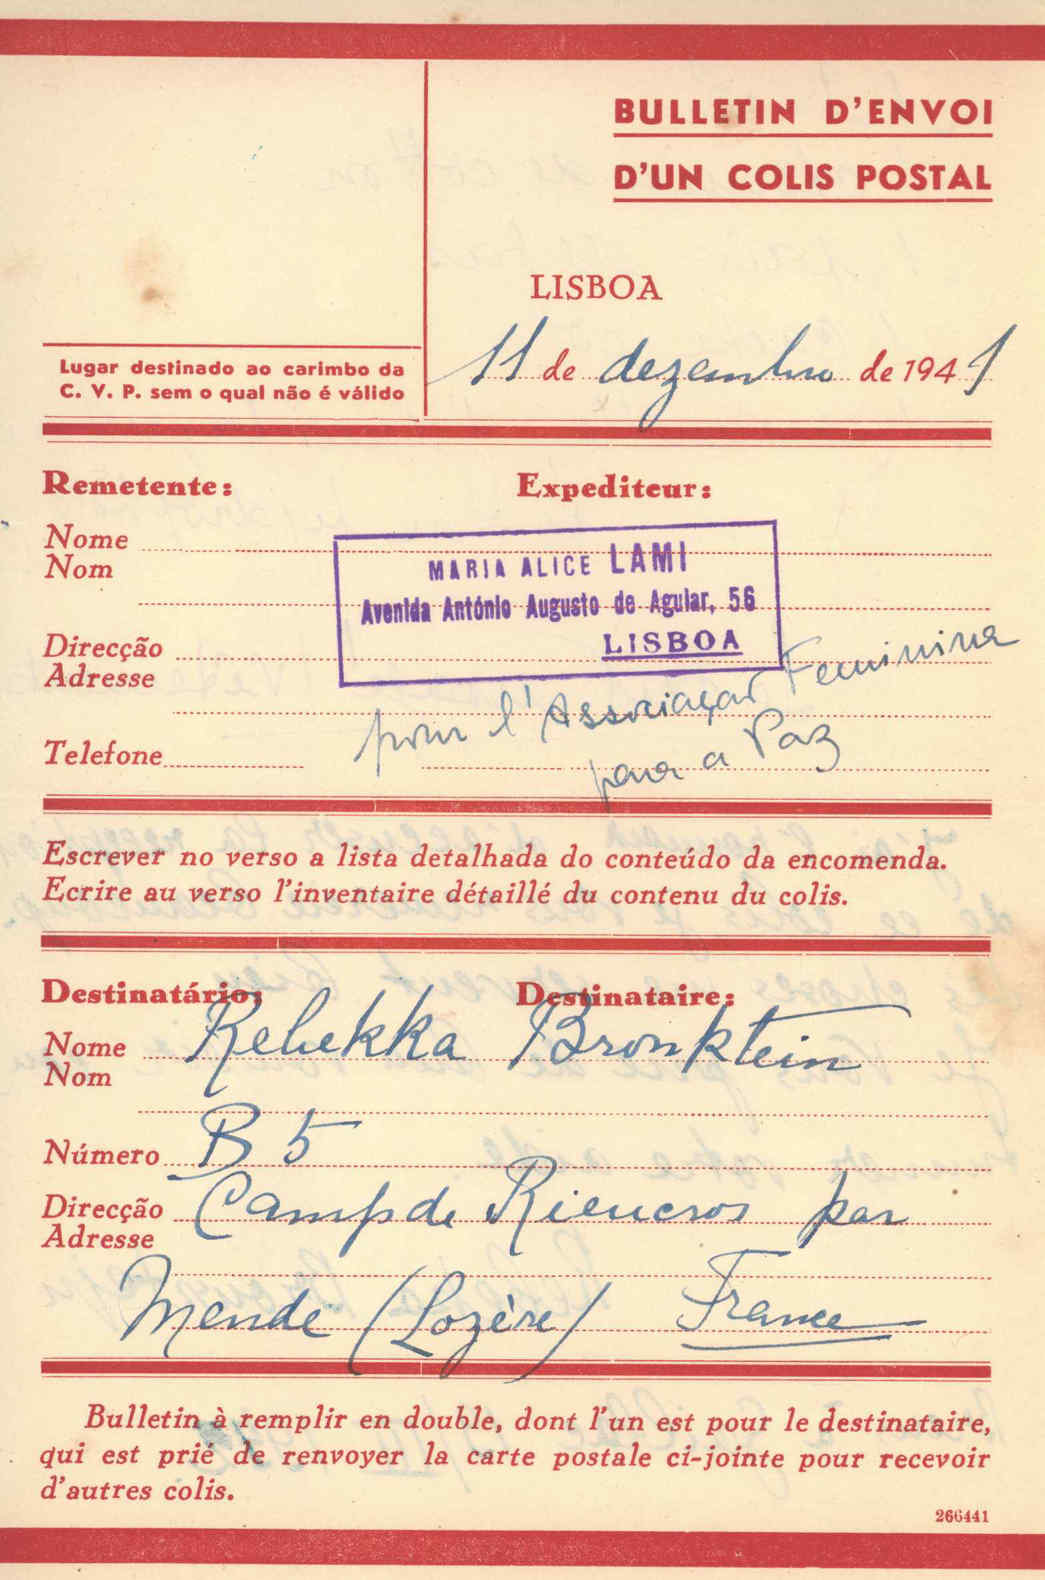 BULLETIN D'ENVOI
D'UN COLIS POSTAL
LISBOA
11 de dezembro de 1941
Lugar destinado ao carimbo da
C. V. P. sem o qual não é válido
Remetente: Expediteur:
Nome
Nom
MARIA ALICE LAMI
Avenida António Augusto de Aguiar, 56
LISBOA
Direcção
Adresse
pour l'Associaçao Feminina
para a Paz
Telefone
Escrever no verso a lista detalhada do conteúdo da encomenda.
Ecrire au verso l'inventaire détaillé du contenu du colis.
Destinatário: Destinataire:
Nome Rebekka Bronktein
Nom
Número B 5
Direcção Camp de Rieucros par
Adresse
Mende (Lozère) France
Bulletin à remplir en double, dont l'un est pour le destinataire,
qui est prié de renvoyer la carte postale ci-jointe pour recevoir
d'autres colis.
266441